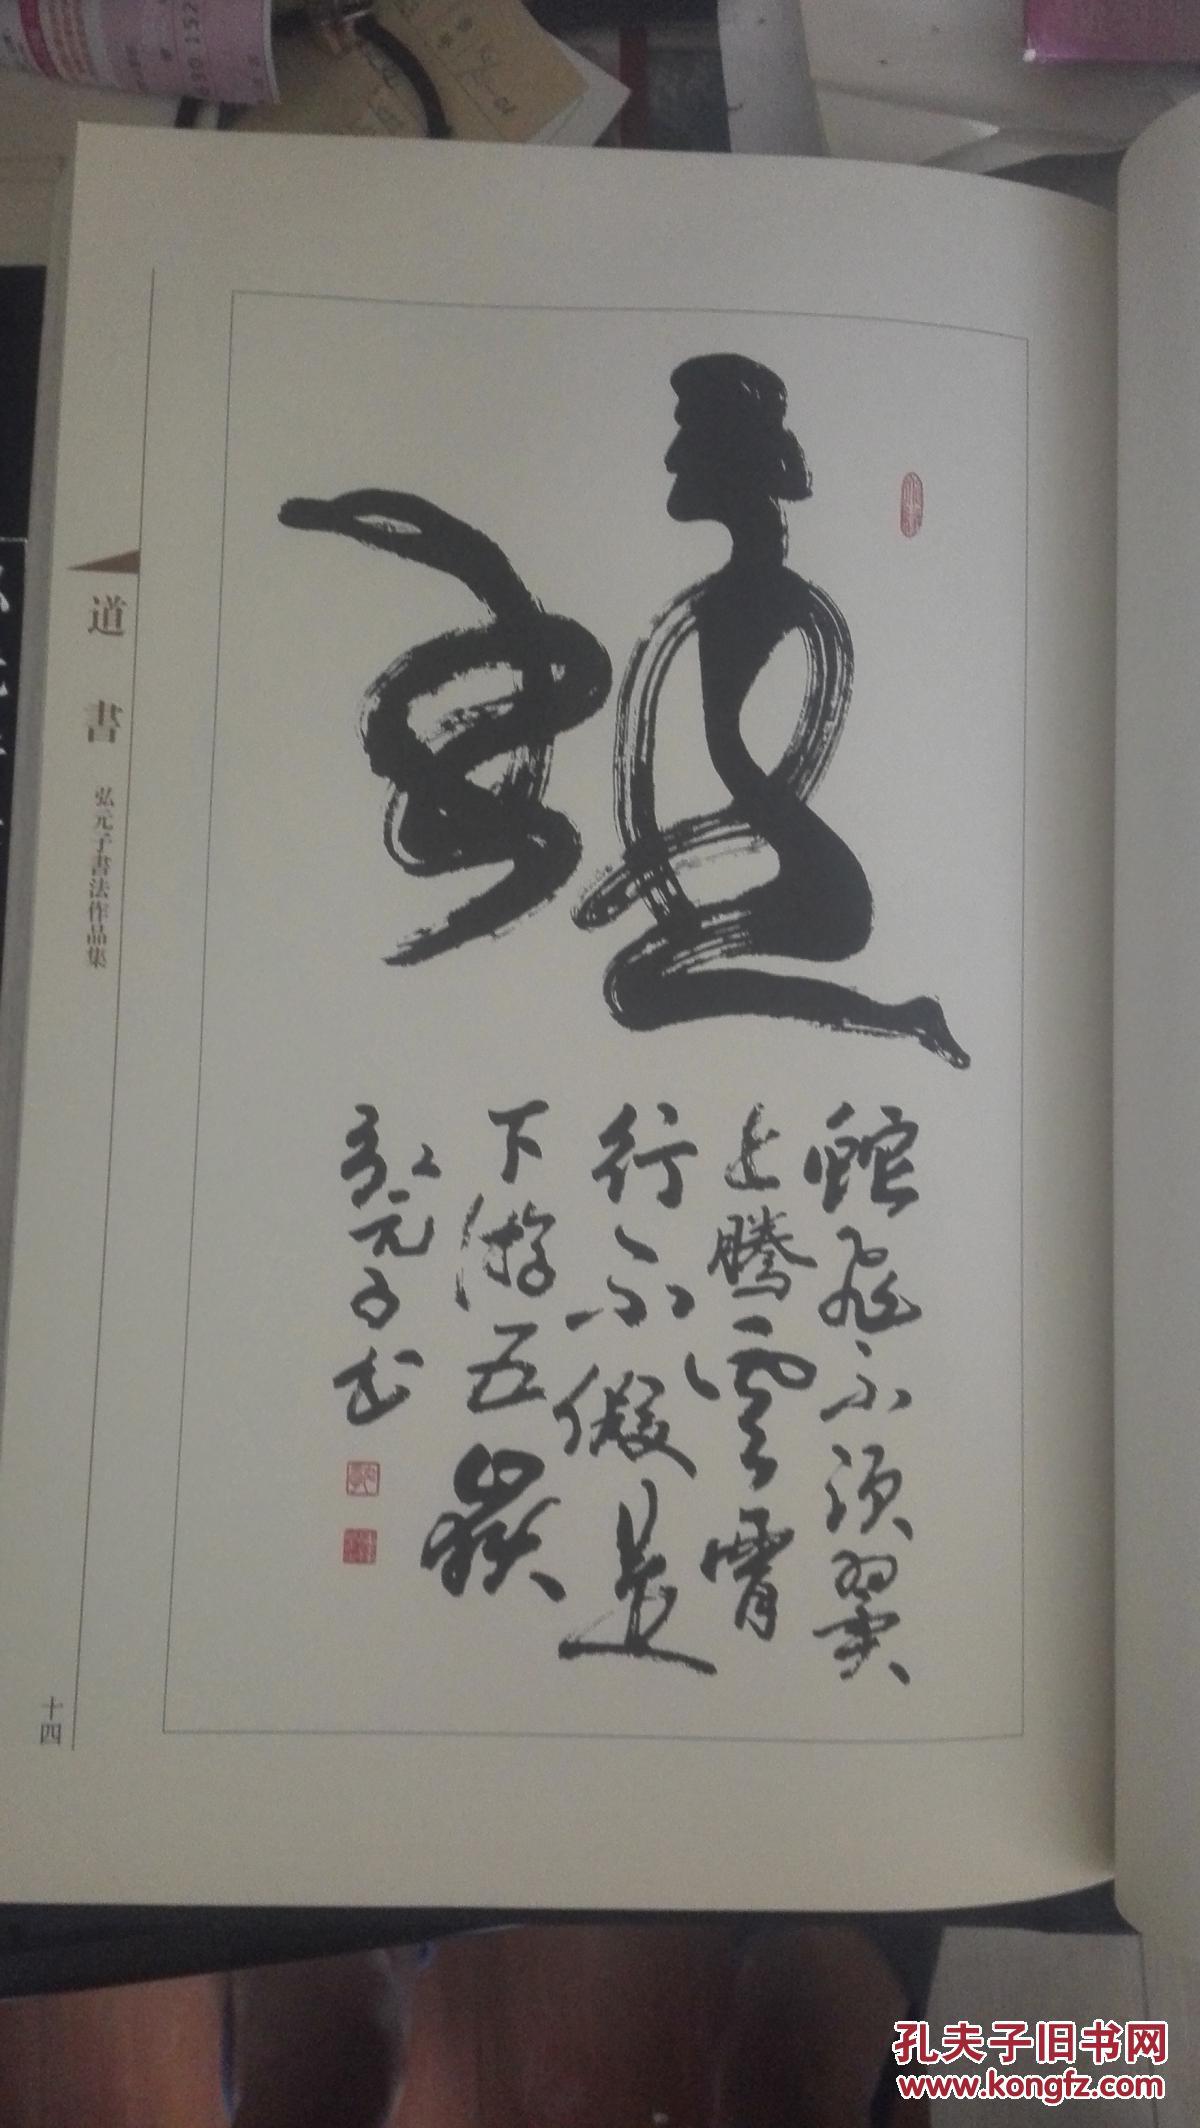 蛇飛不須翼
上騰雲霄
行不假足
下游五嶽
弘元子書
道書
弘元子書法作品集
十四
孔夫子旧书网
www.kongfz.com